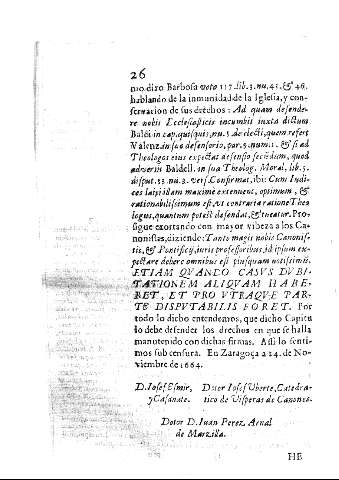 26
mo dixo Barbosa voto 117. lib. 3. nu. 43. & 46.
hablando de la inmunidad de la Iglesia, y con-
seruacion de sus drechos: Ad quam defende-
re nobis Ecclesiasticis incumbit iuxta dictum
Baldi in cap. quisquis, nu. 5. de electi, quem refert
Valenz. in suo defensorio, par. 5. num. 1. & si ad
Theologos eius expectat defensio secundum, quod
aduertit Baldell. in sua Theolog. Moral, lib. 5.
disput. 53. nu. 3. vers. Confirmat, ibi: Cum Iudi-
ces laici illam maxime extenuent, optimum, &
rationabilissimum est, vt contraria ratione Theo
logus, quantum potest defendat, & tueatur. Pro-
sigue exortando con mayor vibeza a los Ca-
nonistas, diziendo: Tanto magis nobis Canonis-
tis, & Pontificij iuris professoribus, id ipsum ex-
pectare debere omnibus est plusquam notissimũ.
ETIAM QVANDO CASVS DVBI-
TATIONEM ALIQVAM HABE-
RET, ET PRO VTRAQVE PAR-
TE DISPVTABILIS FORET. Por
todo lo dicho entendemos, que dicho Capitu
lo debe defender los drechos en que se halla
manutepido con dichas firmas. Assi lo senti-
mos sub censura. En Zaragoça a 24. de No-
viembre de 1664.
D. Iosef Esmir, Dotor Iosef Vberte, Catedra-
y Casanate. tico de Visperas de Canones.
Dotor D. Iuan Perez Arnal
de Marzilla.
HE